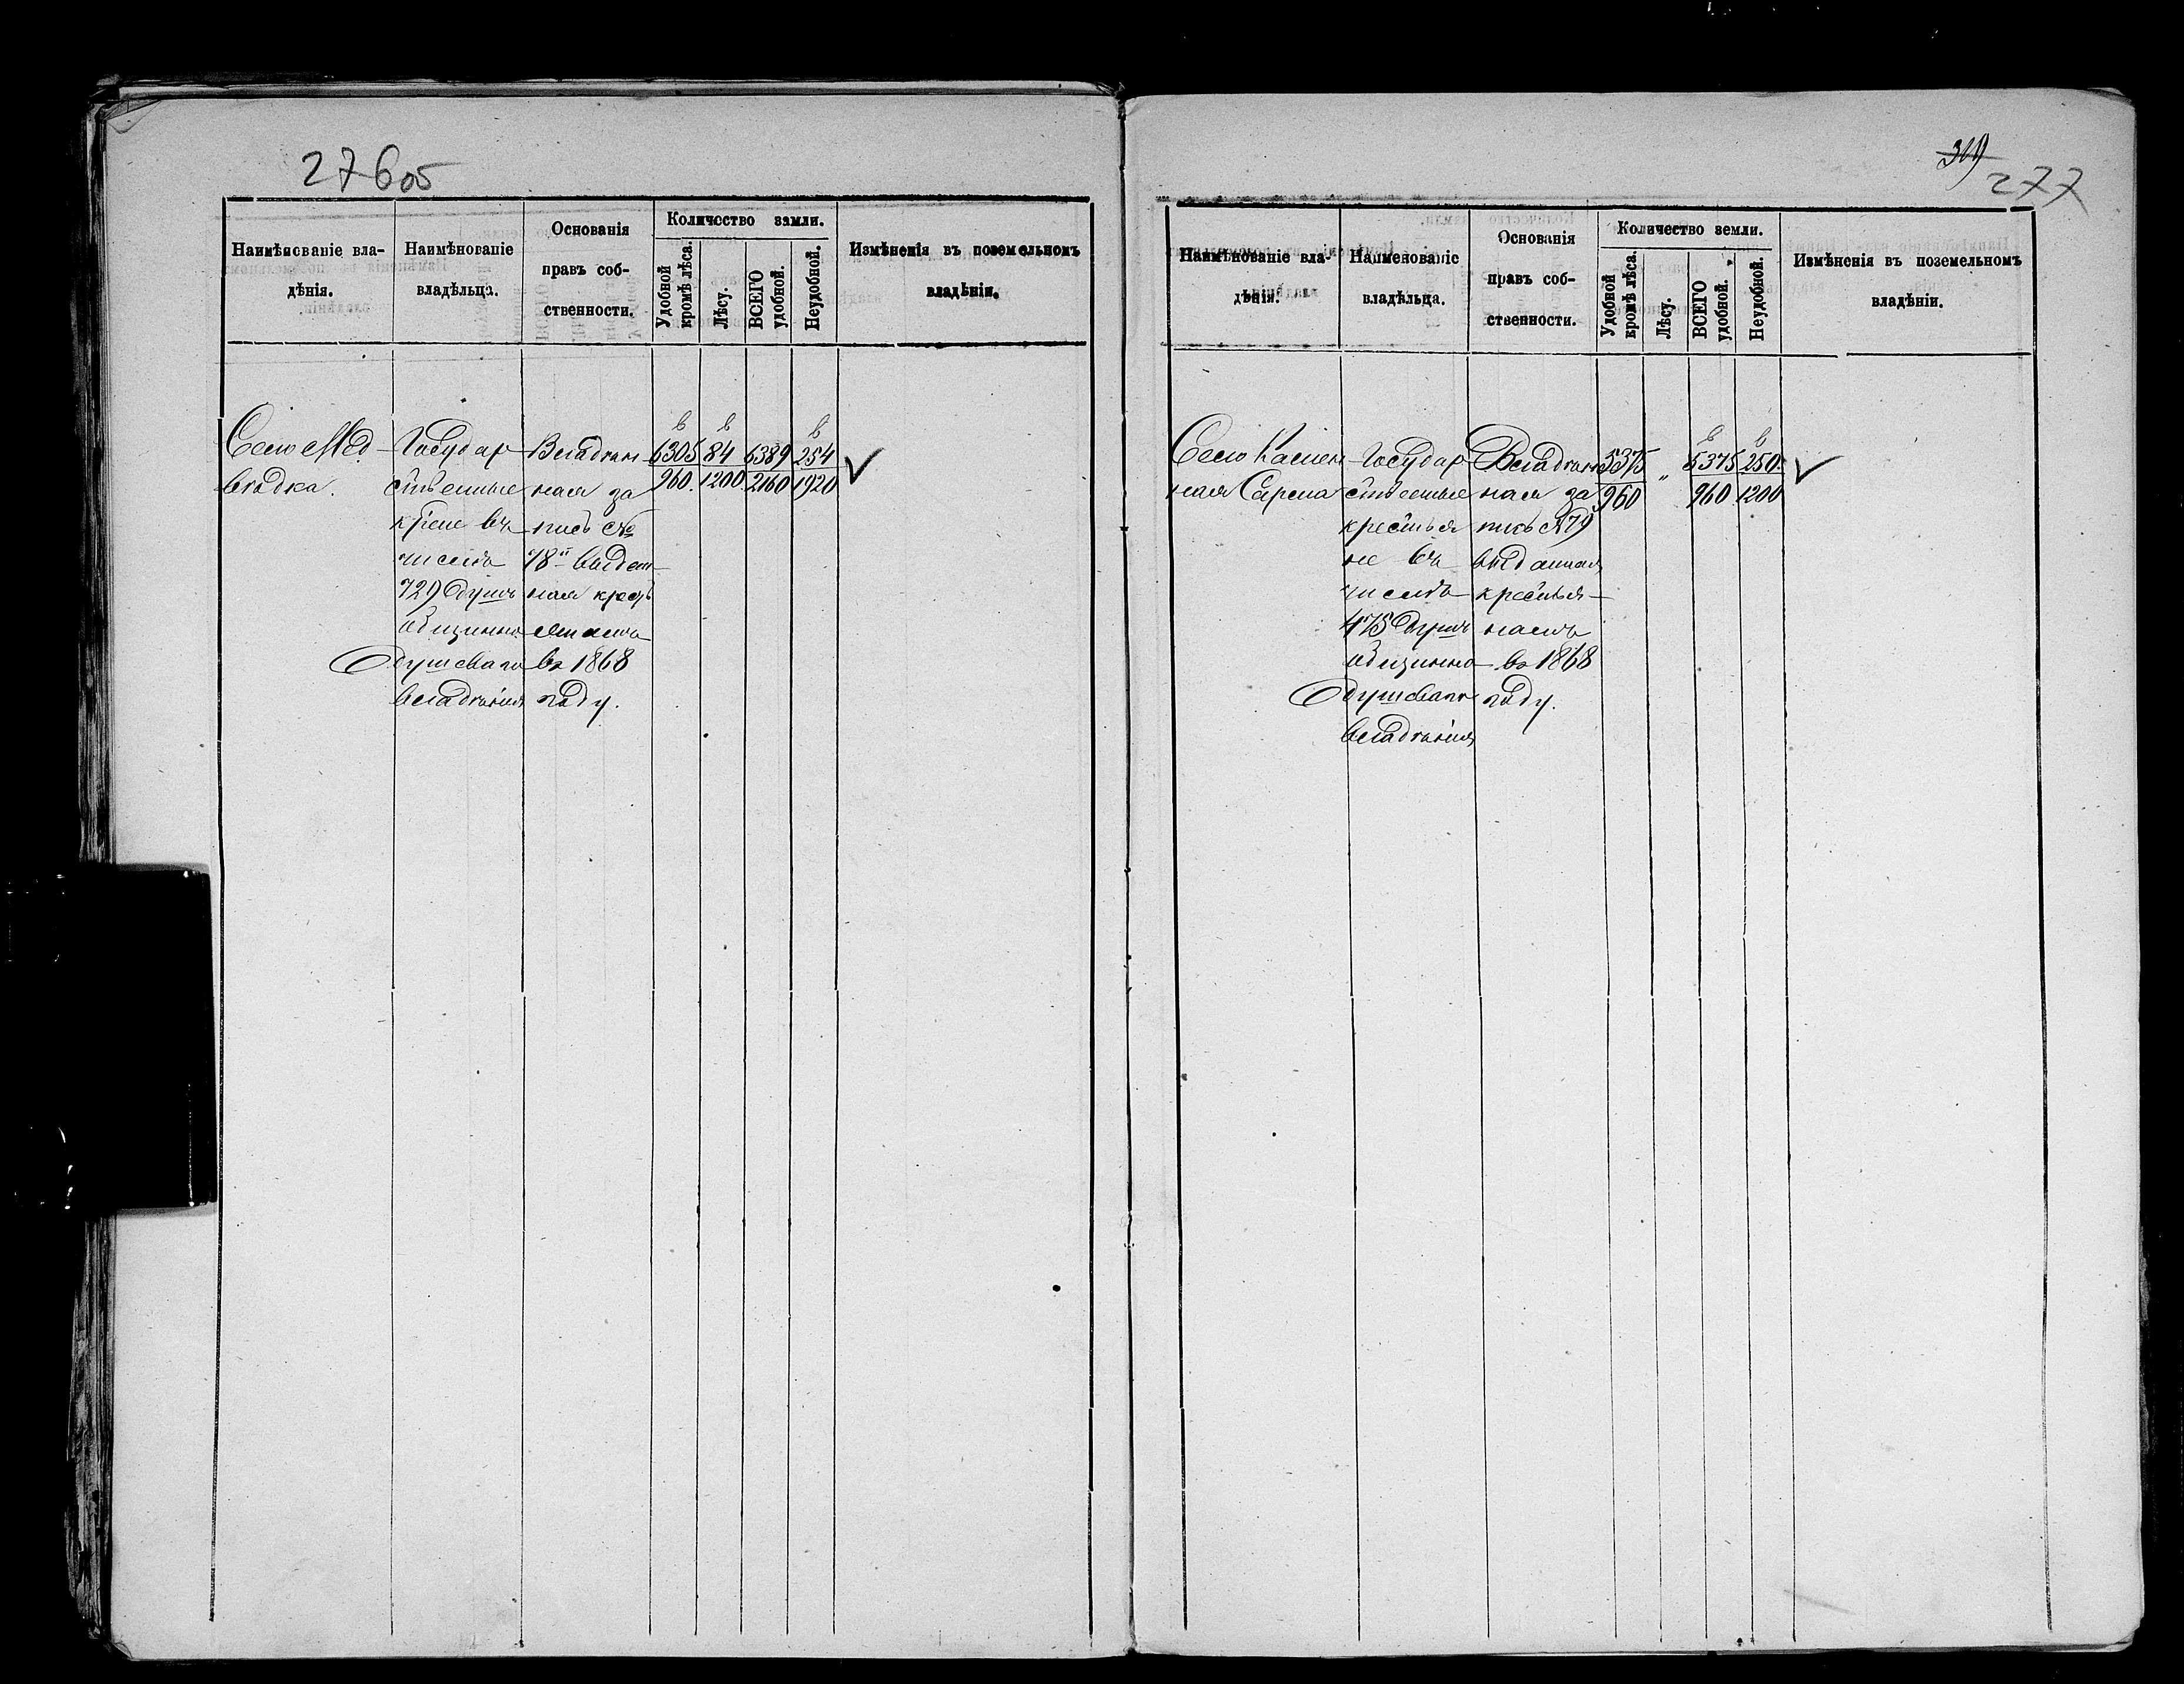 276об
Наимѣнованіе вла-
дѣнія.
Наимѣнованіе
владѣльца.
Основанія
правъ соб-
ственности.
Количество земли.
Удобной
кромѣ лѣса.
Лѣсу.
ВСЕГО
удобной.
Неудобной.
Измѣненія въ поземельномъ
владѣніи.
Село Мѣд-
вѣдка.
Государ
ственные
крѣне въ
числѣ
729 душъ
общинно
душеваго
владѣнія
Владѣн
ная за
пись №
78й выдан
ная кресть
янамъ
въ 1868
году.
6305
960.
84
1200.
6389
2160
254
1920
277
Наимѣнованіе вла-
дѣнія.
Наименованіе
владѣльца.
Основанія
правъ соб-
ственности.
Количество земли.
Удобной
кромѣ лѣса.
Лѣсу.
ВСЕГО
удобной.
Неудобной.
Измѣненія въ поземельномъ
владѣніи.
Село Камен
ная Сарма
Государ
ственные
крестья
не въ
числѣ
475 душъ
общинно
душеваго
владѣнія
Владѣн
ная за
пись №79
выданная
крестья-
намъ
въ 1868
году.
5375
960
"
5375
960
250.
1200